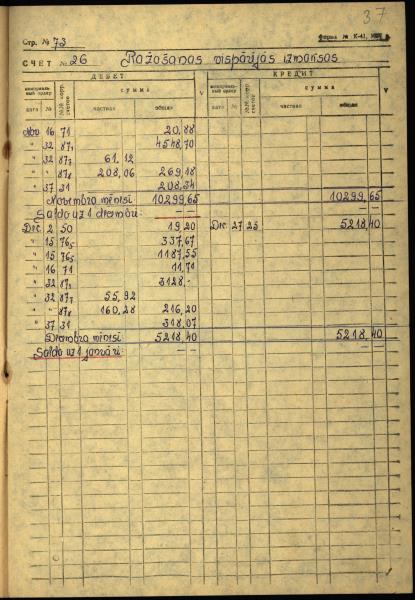 37
Стр. № 73 Форма № К-41,
СЧЕТ № 26 Ražošanas vispārējās izmaksas
ДЕБЕТ КРЕДИТ
мемориальный ордер №№ корр. счетов сумма V мемориальный ордер №№ корр. счетов сумма V
дата № частная общая дата № частная общая
Nov 16 71 20,88
" 32 87₁ 4548,70
" 32 87₇ 61,12
" " 87₈ 208,06 269,18
" 37 31 208,34
Novembra mēnesī 10299,65 10299,65
Saldo uz 1 decembri: — —
Dec 2 50 19,20 Dec 27 25 5218,40
" 15 76₅ 337,67
" 15 76₅ 1187,55
" 16 71 11,71
" 32 87₁ 3128.-
" 32 87₇ 55,92
" " 87₈ 160,28 216,20
" 37 31 318,07
Decembra mēnesī 5218,40 5218,40
Saldo uz 1 janvāri: — —